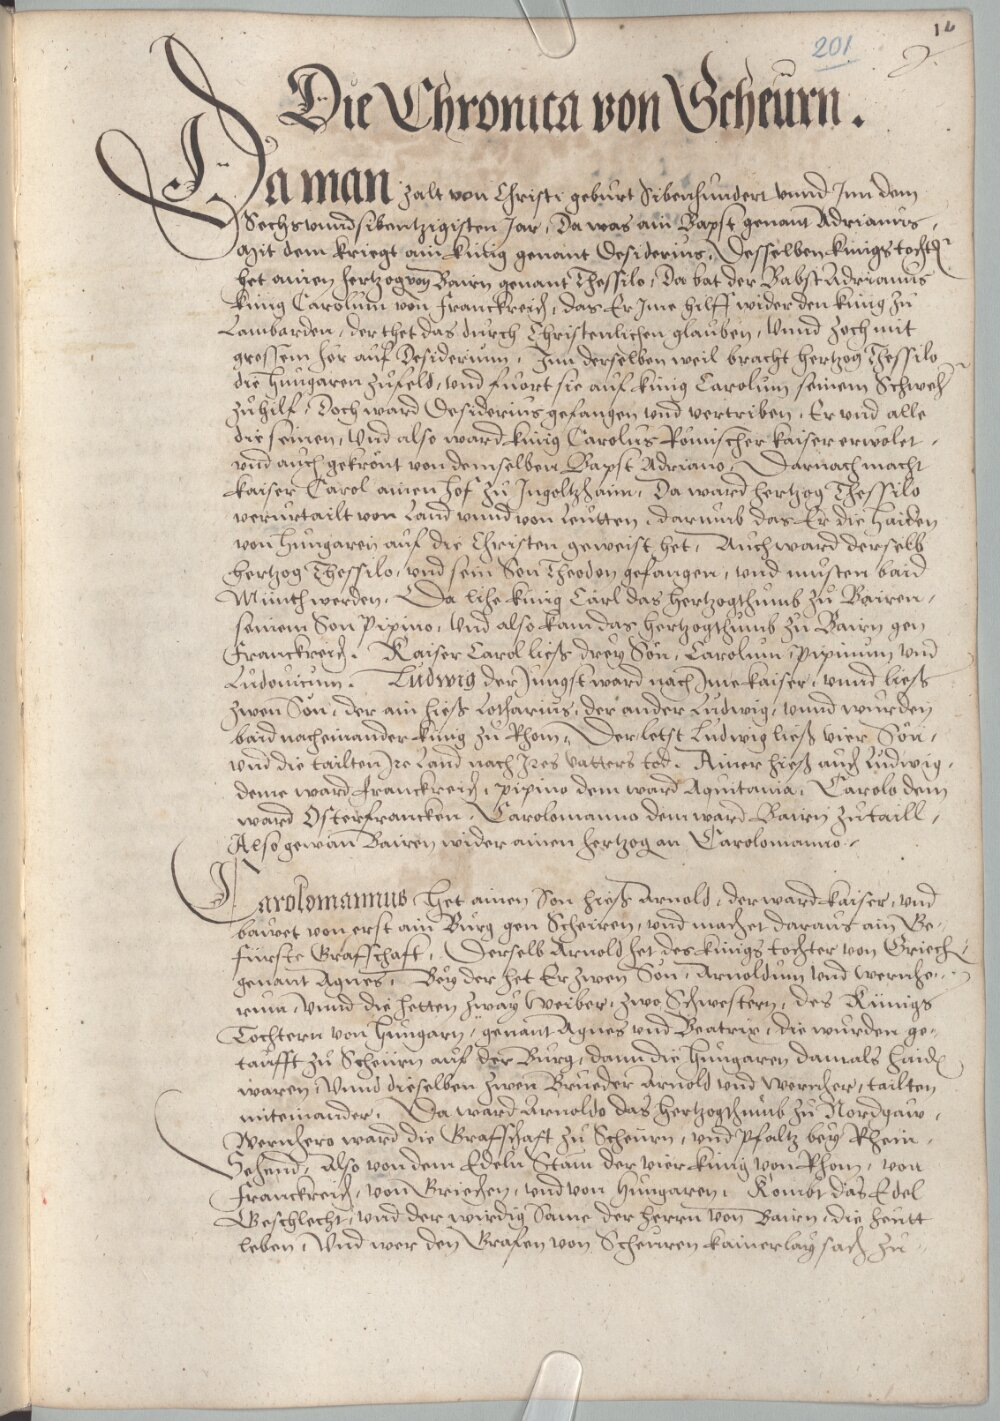 201
Die Chronica von Scheürn.
Da man zalt von Christi geburt Sibenhundert vnnd Jnn dem
Sechsvnndsibentzigisten Jar, Da was ain Bapst genant Adrianus,
Mit dem kriegt ain künig genant Desiderius, Desselben künigs tochter
het ainen hertzog von Bairn genant Thessilo, Da bat der Babst Adrianus
künig Carolum von Franckreich, das Er Jme hilff wider den künig zu
Lambarden, der thet das durch Christenlichen glauben, Vnnd zoch mit
grossem hör auf Desiderium, Jnn derselben weil bracht hertzog Thessilo
die hungaren zufeld, vnd fuort sie auf künig Carolum seinem Schweher
zuhilf, Doch ward Desiderius gefangen vnd vertriben, Er vnd alle
die seinen, Vnd also ward künig Carolus Römischer kaiser erwölet,
vnd auch gekrönt von demselben Bapst Adriano, Darnach macht
kaiser Carol ainen hof zu Jngoltzhaim, Da ward hertzog Thessilo
verurtailt von Land vnnd von Leutten, darumb das Er die haiden
von hungaren auf die Christen geweist het, Auch ward derselb
hertzog Thessilo, vnd sein Son Theodon gefangen, vnd musten baid
Münch werden, Da lihe künig Carl das hertzogthumb zu Bairen,
seinem Son Pipino, Vnd also kam das hertzogthumb zu Bairn gen
Franckreich. Kaiser Carol ließ drey Sön, Carolum, Pipinum vnd
Ludouicum. Ludwig der Jungst ward nach Jme kaiser, vnnd ließ
zwen Sön, der ain hieß Lotharius, der ander Ludwig, vnnd wurden
baid nacheinander künig zu Rhom, Der letst Ludwig ließ vier Sön,
vnd die tailten Jre Land nach Jres vatters tod. Ainer hieß auch Ludwig,
deme ward Franckreich, Pipino dem ward Aquitania, Carolo dem
ward Osterfrancken, Carolomanno dem ward Bairn zutaill,
Also gewan Bairen wider ainen hertzog an Carolomanno.
Carolomannus het ainen Son hieß Arnold, der ward kaiser, vnd
bauwet von erst ain Burg gen Scheiren, vnd machet daraus ain Ge-
fürste Grafschaft, Derselb Arnold het des künigs tochter von Griechen
genant Agnes, Bey der het Er zwen Sön, Arnoldum vnd Wernhe-
rum, Vnnd die hetten zway Weiber, zwo Schwestern, des Künigs
Tochtern von Hungarn, genant Agnes vnd Beatrix, die wurden ge-
taufft zu Scheurn auf der Burg, dann die Hungaren damals haiden
waren, Vnnd dieselben zwen Brueder Arnold vnd Wernher, tailten
miteinander, Da ward Arnoldo das hertzogthumb zu Nordgaw,
Wernhero ward die Grafschaft zu Scheurn, vnd Pfaltz bey Rhein,
Sehend, Also von dem Edeln Stam der vier künig von Rhom, von
Franckreich, von Griechen, vnd von Hungaren, Kombt das Edel
Geschlecht, vnd der wirdig Same der herrn von Bairn, die heutt
leben, Vnd wer den Grafen von Scheuren kainerlay sach zu-